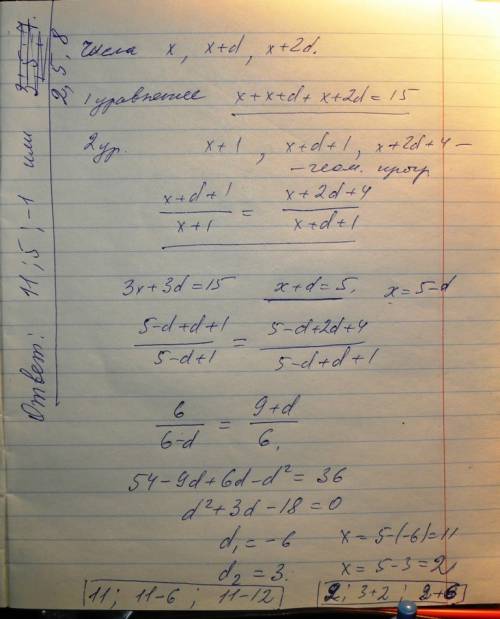 Числа x, x+d, x+2d.
1 уравнение x+x+d+x+2d=15
2 ур. x+1, x+d+1, x+2d+4 –
– геом. прогр
(x+d+1)/(x+1) = (x+2d+4)/(x+d+1)
3x+3d=15 x+d=5, x=5-d
(5-d+d+1)/(5-d+1) = (5-d+2d+4)/(5-d+d+1)
6/(6-d) = (9+d)/6,
54-9d+6d-d²=36
d²+3d-18=0
d₁=-6 x=5-(-6)=11
d₂=3. x=5-3=2,
11; 11-6; 11-12 2; 3+2; 2+6
Ответ: 11; 5; -1 или
2, 5, 8